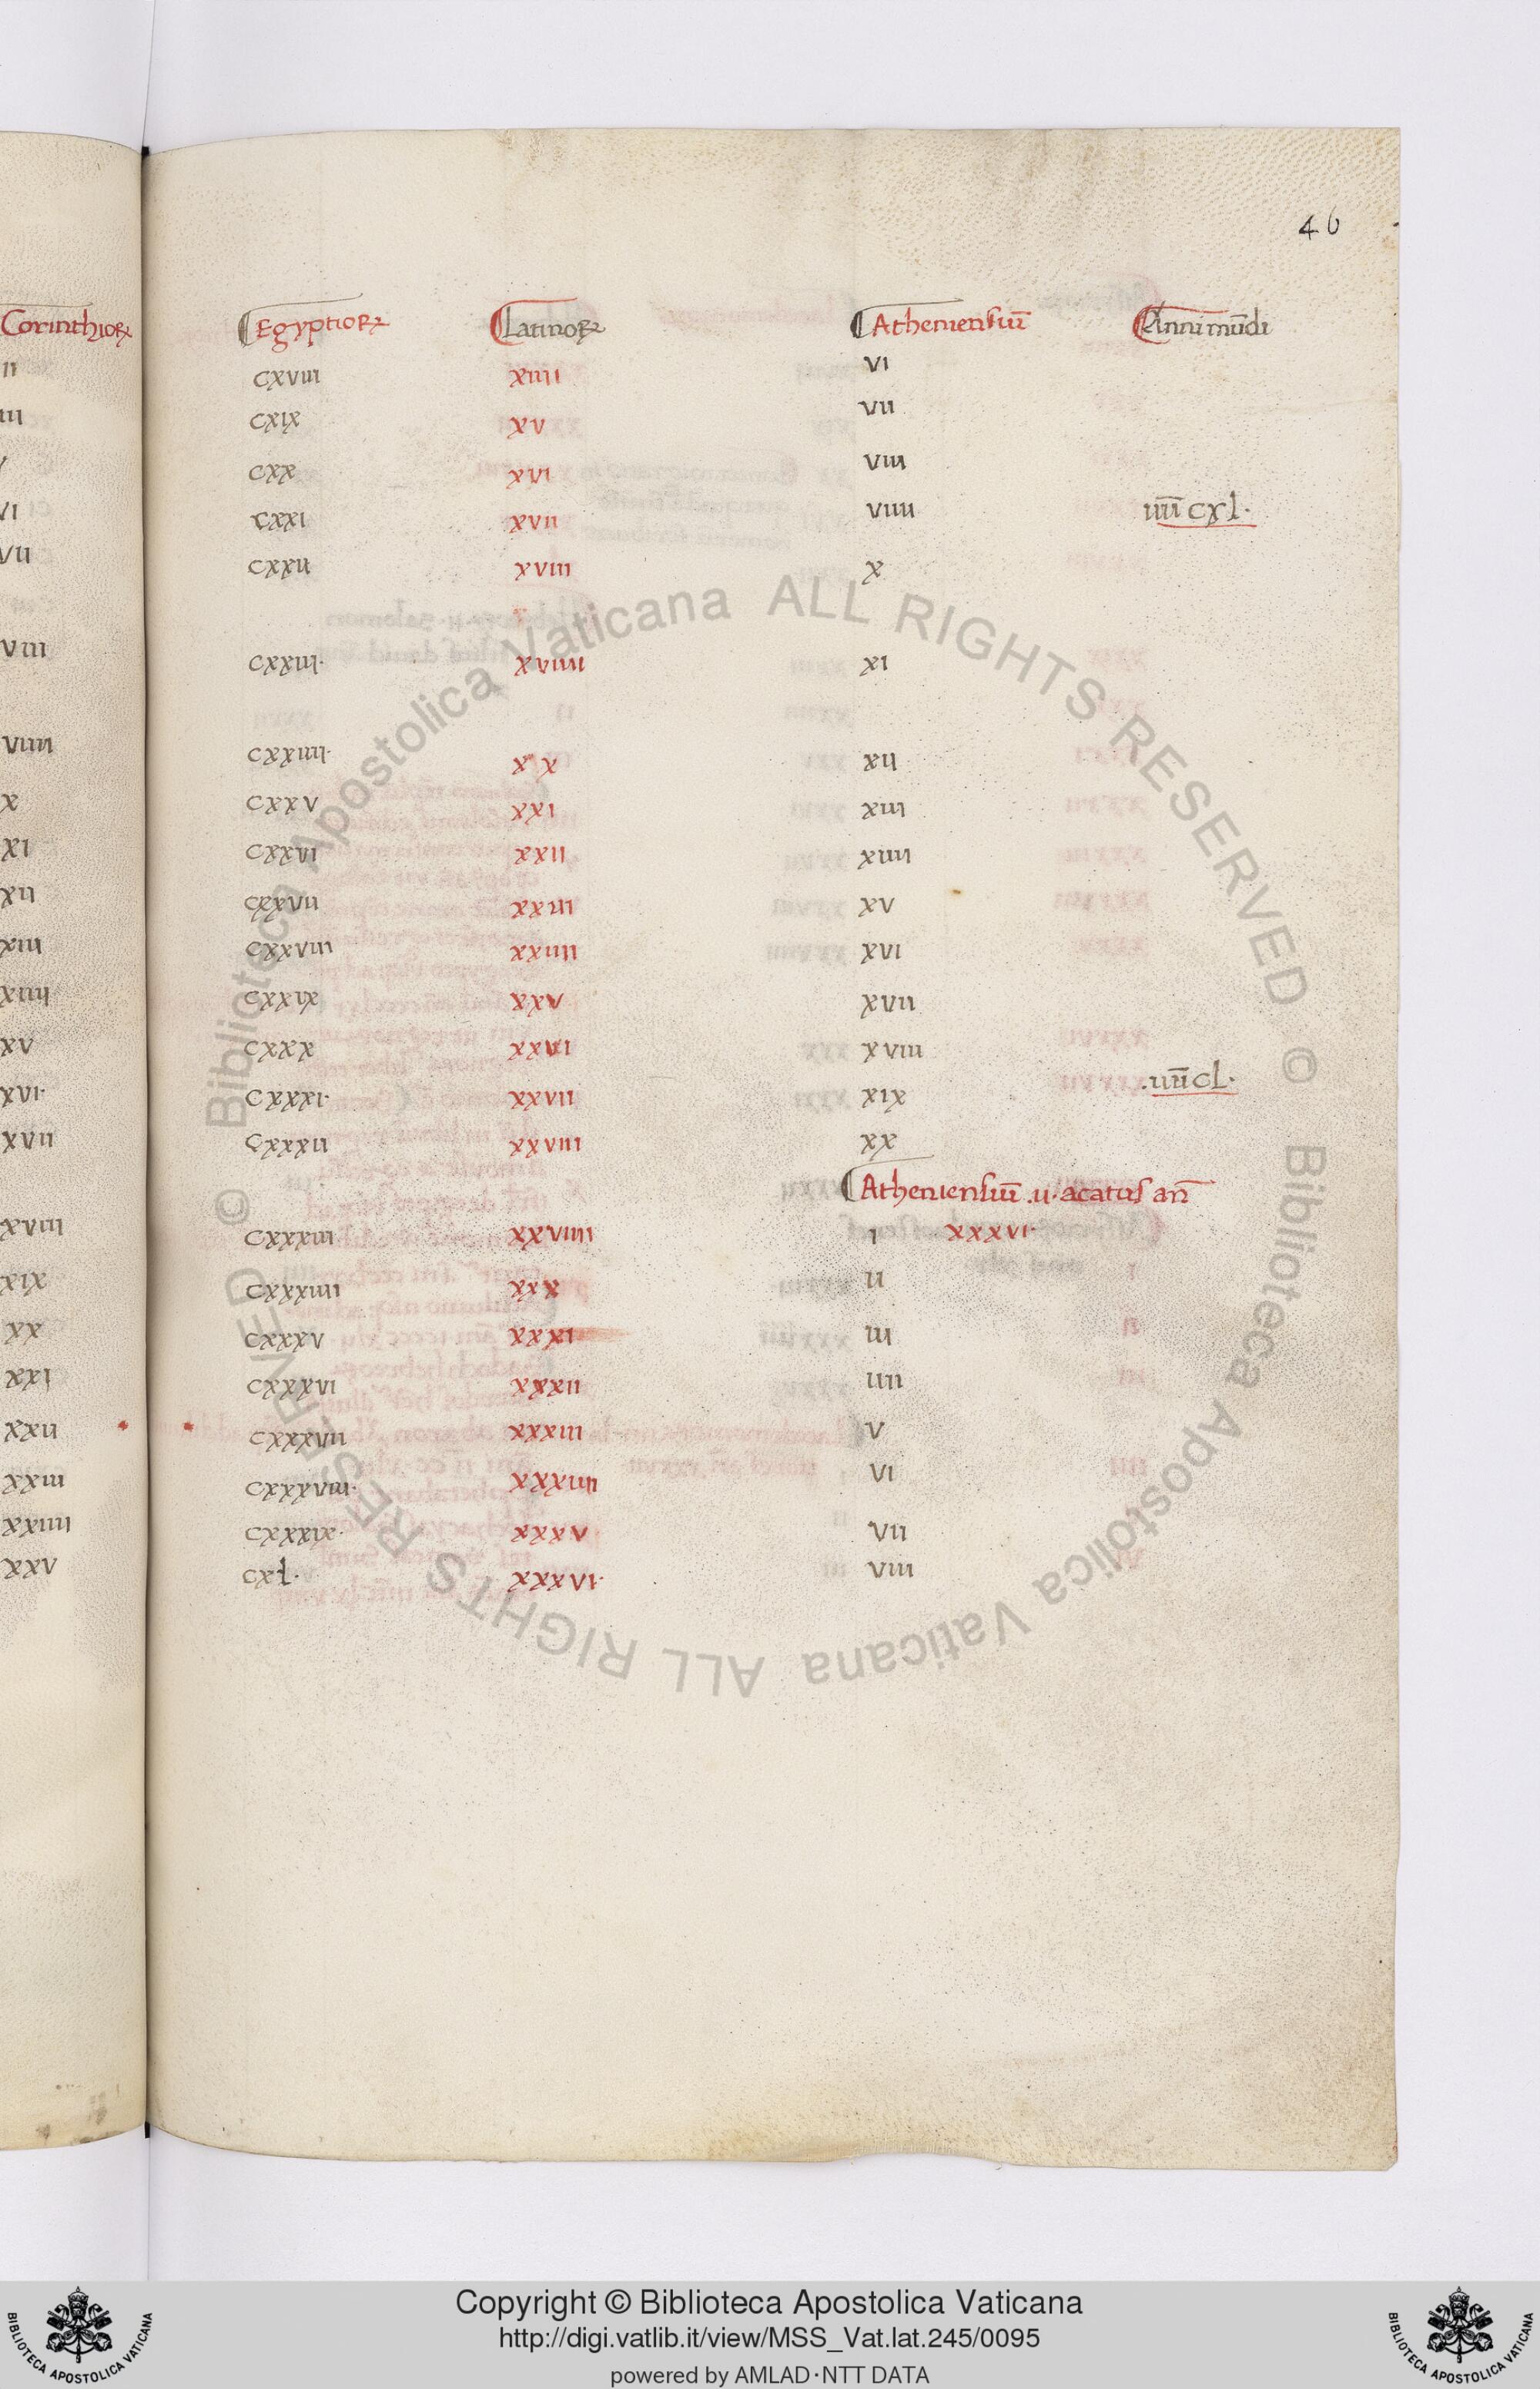 46
Corinthioꝝ Egyptioꝝ Latinoꝝ Atheniensiū Anni mūdi
II CXVIII XIIII VI
III CXIX XV VII
V CXX XVI VIII
VI CXXI XVII VIIII IIII̅ CXL.
VII CXXII XVIII X
VIII CXXIII. XVIIII XI
VIIII CXXIIII. XX XII
X CXXV XXI XIII
XI CXXVI XXII XIIII
XII CXXVII XXIII XV
XIII CXXVIII XXIIII XVI
XIIII CXXIX XXV XVII
XV CXXX XXVI XVIII
XVI. CXXXI. XXVII XIX .IIII̅ CL.
XVII CXXXII XXVIII XX
Atheniensiū .II. acatus an̄
XVIII CXXXIII XXVIIII I XXXVI.
XIX CXXXIIII XXX II
XX CXXXV XXXI III
XXI CXXXVI XXXII IIII
XXII CXXXVII XXXIII V
XXIII CXXXVIII. XXXIIII VI
XXIIII CXXXIX. XXXV VII
XXV CXL. XXXVI. VIII
© Biblioteca Apostolica Vaticana ALL RIGHTS RESERVED © Biblioteca Apostolica Vaticana ALL RIGHTS RESERVED
Copyright © Biblioteca Apostolica Vaticana
http://digi.vatlib.it/view/MSS_Vat.lat.245/0095
powered by AMLAD·NTT DATA
BIBLIOTECA APOSTOLICA VATICANA
BIBLIOTECA APOSTOLICA VATICANA